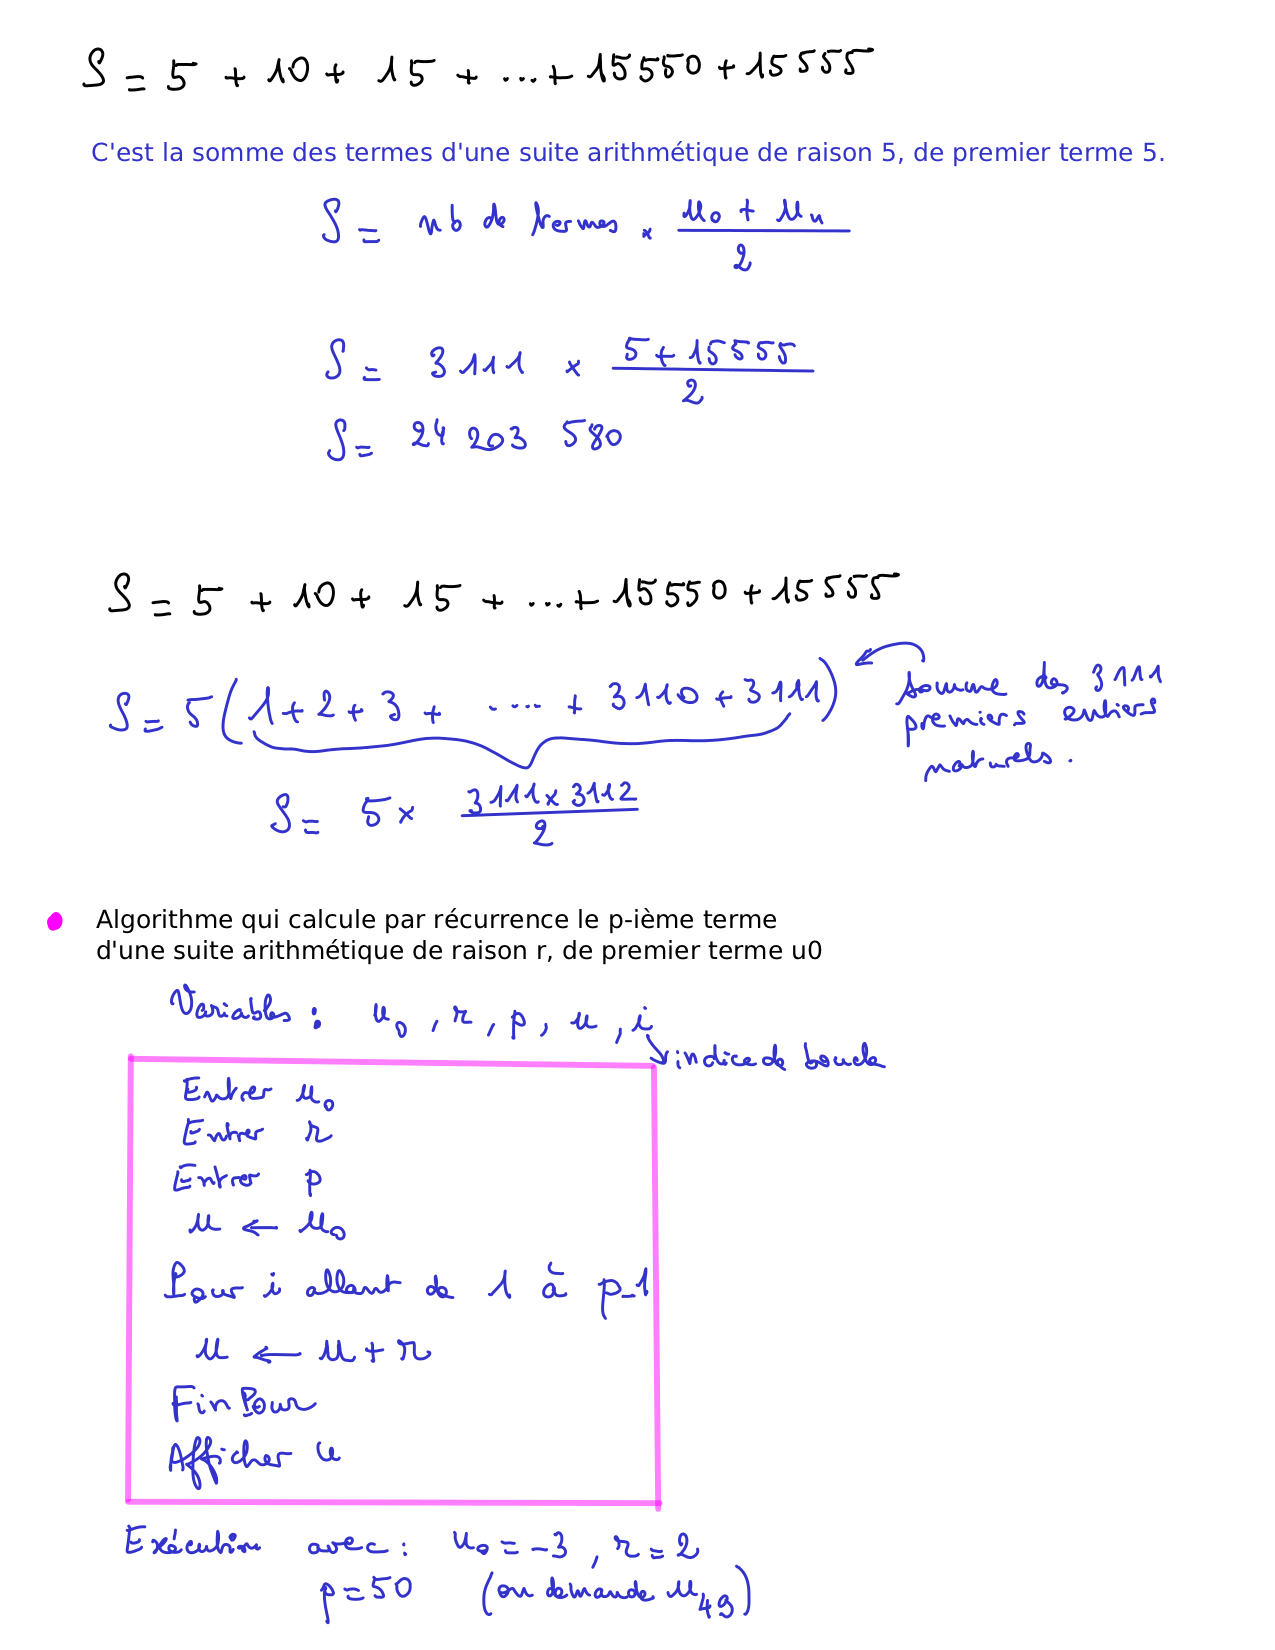 S = 5 + 10 + 15 + ... + 15550 + 15555
C'est la somme des termes d'une suite arithmétique de raison 5, de premier terme 5.
S = nb de termes × (u₀ + uₙ)/2
S = 3111 × (5 + 15555)/2
S = 24 203 580
S = 5 + 10 + 15 + ... + 15550 + 15555
S = 5 ( 1 + 2 + 3 + ..... + 3110 + 3111 )
somme des 3111
premiers entiers
naturels.
S = 5 × (3111 × 3112)/2
Algorithme qui calcule par récurrence le p-ième terme
d'une suite arithmétique de raison r, de premier terme u0
Variables : u₀ , r , p , u , i
indice de boucle
Entrer u₀
Entrer r
Entrer p
u ← u₀
Pour i allant de 1 à p-1
u ← u + r
Fin Pour
Afficher u
Exécution avec : u₀ = -3 , r = 2
p = 50 (on demande u₄₉)